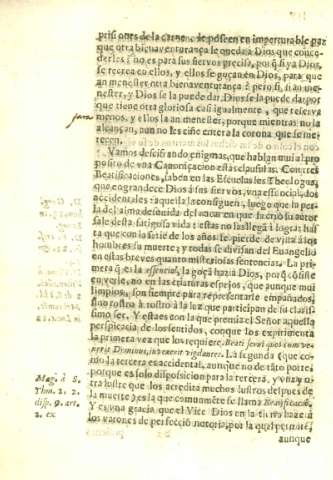 prisiones de la carne, le poseen en imperturable paz
que otra bienaventurança le queda a Dios que conce-
derles? no es para sus siervos precisa, porq̃ si ya Dios
se recrea en ellos, y ellos se goçan en Dios, para que
an menester otra bienaventurança? pero si, si an me-
nester, y Dios se la puede dar, Dios se la puede dar por
que tiene otra gloriosa casi igualmente, que reserva
menos, y ellos la an menester; porque mientras no la
alcançan, aun no les ciñe entera la corona que se me-
recen.
Vamos descifrando enigmas, que hablan mui al pro
posito de una Canonizacion estas clausulas. Con tres
Beatificaciones, saben en las Escuelas los Theologos,
que engrandece Dios à sus siervos, una essencial, dos
accidentales: aquella la consiguen, luego que la per-
la del alma desunida del nacar en que la crió su autor
sale desta fatigosa vida; estas no las llegà à lograr has
ta que con la serie de los años, se pierde de vista à los
hombres su muerte; y todas se divisan del Evangelio
en estas breves quanto misteriosas sentencias. La pri-
mera q̃ es la essencial, la goça hazia Dios, porq̃ cõsiste
en verle, no en las criaturas espejos, que aunque mui
limpios, son siempre para representarle empañados,
sino rostro à rostro à la luz que participan de su claris-
simo ser. Y esta es con que premia el Señor aquella
perspicacia de los sentidos, conque los experimenta
la primera vez que los requiere. Beati servi quos cum ve-
nerit Dominus, invenerit vigilantes. La segunda (que co-
mo la tercera es accidental, aunque no de tãto porte;
porque es solo disposicion para la tercera, y
tra lustre que los acredita muchos lustros despues de
la muerte) es la que comunmẽte se llama Beatificaciõ.
Y es una gracia que el Vice Dios en la tierra haze à
los varones de perfecció notoria, por la qual permite,
aunque
Mag. à S.
Tho. 2. 2.
disp. 9. art.
2. ex